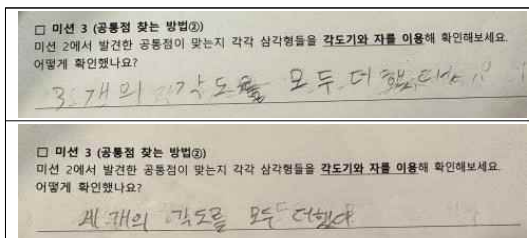 □ 미션 3 (공통점 찾는 방법②)
미션 2에서 발견한 공통점이 맞는지 각각 삼각형들을 각도기와 자를 이용해 확인해보세요.
어떻게 확인했나요?
3개의 각도를 모두 더했더니
□ 미션 3 (공통점 찾는 방법②)
미션 2에서 발견한 공통점이 맞는지 각각 삼각형들을 각도기와 자를 이용해 확인해보세요.
어떻게 확인했나요?
세 개의 각도를 모두 더했다